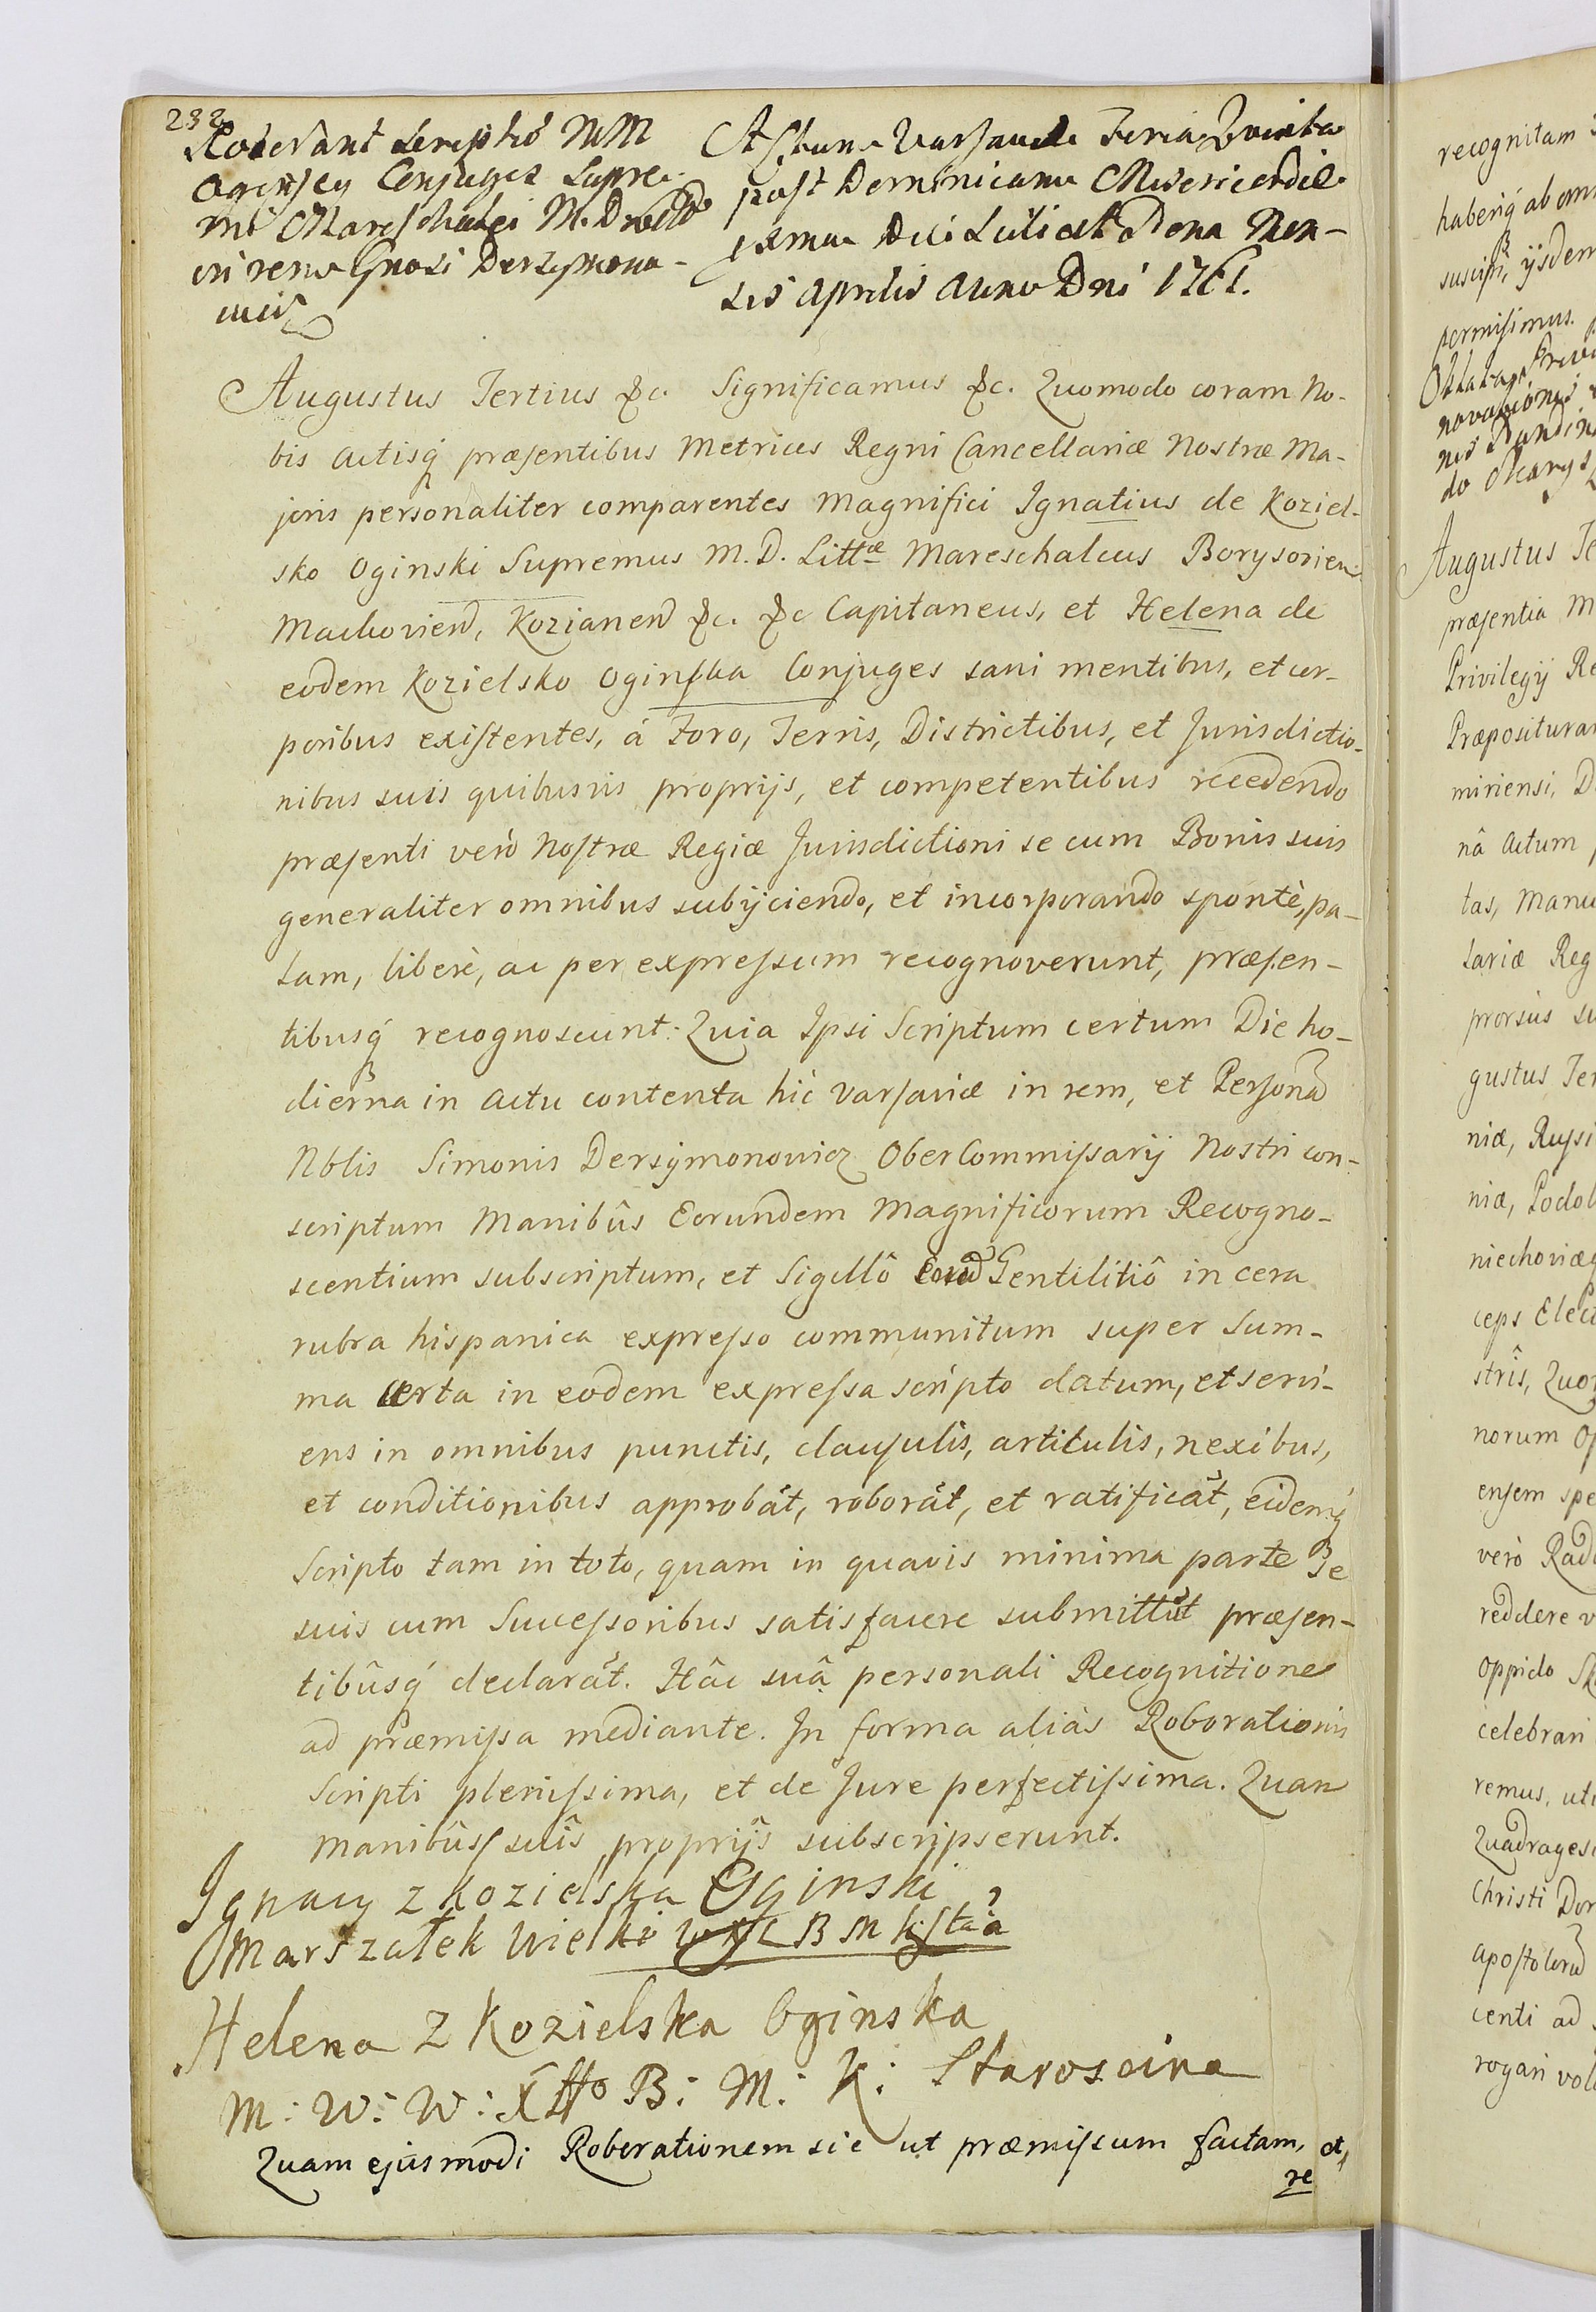 232
Roborant Scripto MM
Oginscy Conjuges Supre-
mi Mareschalci M. D. Litt.
in rem Gnosi Dersymono-
wicz
Actum Varsaviæ Feria Quinta
post Dominicam Misericordiæ
proxima Die Decima Men-
sis Aprilis Anno Dni 1761.
Augustus Tertius &c. Significamus &c. Quomodo coram No-
bis Actisq́ præsentibus Metrices Regni Cancellariæ Nostræ Ma-
joris personaliter comparentes Magnifici Ignatius de Koziel-
sko Oginski Supremus M. D. Littæ Mareschalcus Borysovien
Machovien, Kozianen &c. &c Capitaneus, et Helena de
eodem Kozielsko Oginska Conjuges sani mentibus, et cor-
poribus existentes, á Foro, Terris, Districtibus, et Jurisdictio-
nibus suis quibusvis proprijs, et competentibus recedendo
præsenti verò Nostræ Regiæ Jurisdictioni se cum Bonis suis
generaliter omnibus subijciendo, et incorporando spontè, pa-
lam, liberè, ac per expressum recognoverunt, præsen-
tibusq́ recognoscunt: Quia Ipsi Scriptum certum Die ho-
dierna in Actu contenta hic Varsaviæ in rem, et Persona
Nblis Simonis Dersymonowicz Ober Commissarij Nostri con-
scriptum Manibûs Eorundem Magnificorum Recogno-
scentium subscriptum, et Sigillô Eorund Gentilitiô in cera
rubra hispanica expresso communitum super Sum-
ma certa in eodem expressa scripto datum, et servi-
ens in omnibus punctis, clausulis, articulis, nexibus,
et conditionibus approbat, roborat, et ratificat, eidemq́
Scripto tam in toto, quam in quavis minima parte Se
suis cum Successoribus satisfacere submittūt præsen-
tibûsq́ declarat. Hâc suâ personali Recognitione
ad præmissa mediante. In forma aliàs Roborationis
Scripti plenissima, et de Jure perfectissima. Quam
Manibûs suîs proprijs subscripserunt.
Ignacy z Kozielska Oginski
Marszałek Wielki B M K
Helena z Kozielska Oginska
M: W: W: X Litto B: M: K: Staroscina
Quam ejusmodi Roborationem sic ut præmissum factam, et
re
recognitam
haberiq́ ab om
suscipi, ijsdem
permisimus.
novationis
do
Augustus Te
præsentia M
Privilegij Re
Præposituram
miriensi, D
nâ Actum
tas, Manu
lariæ Reg
prorsus su
gustus Ter
niæ, Russi
niæ, Podol
niechoviæq
ceps Elect
strîs, Quo
norum Op
ensem spe
verò Rado
reddere v
Oppido Sk
celebrari
remus, uti
Quadrages
Christi Do
Apostolorū
centi ad
rogari vol